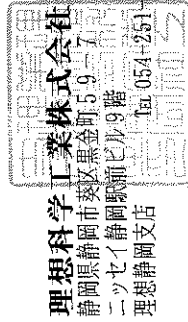 理想科学工業株式会社
静岡県静岡市葵区黒金町59-7
ニッセイ静岡駅前ビル9階
理想静岡支店 TEL 054-251-